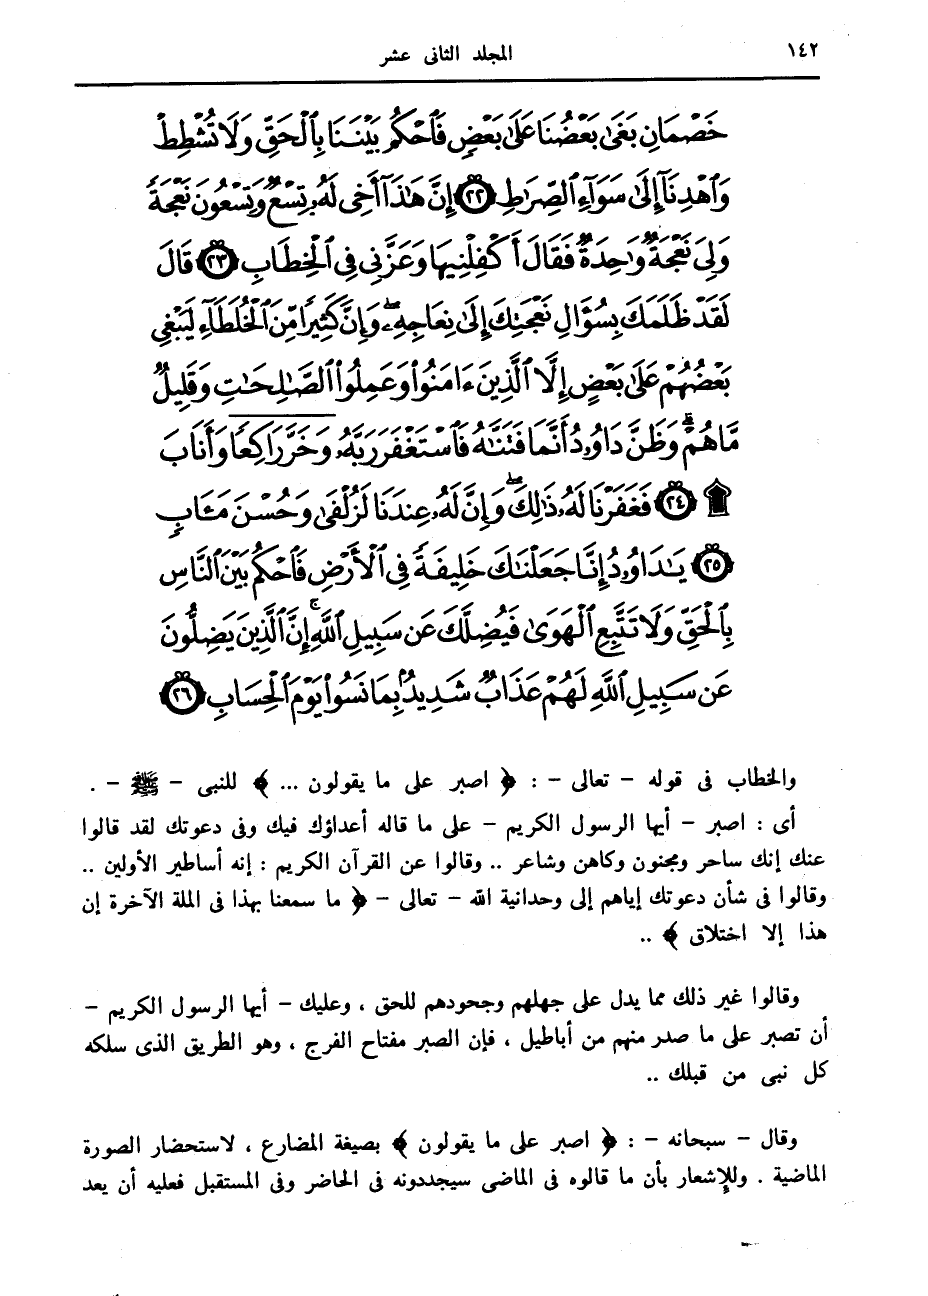 ١٤٢
المجلد الثانى عشر
خَصْمَانِ بَغَىٰ بَعْضُنَا عَلَىٰ بَعْضٍ فَٱحْكُم بَيْنَنَا بِٱلْحَقِّ وَلَا تُشْطِطْ
وَٱهْدِنَآ إِلَىٰ سَوَآءِ ٱلصِّرَٰطِ ٢٢ إِنَّ هَٰذَآ أَخِى لَهُۥ تِسْعٌ وَتِسْعُونَ نَعْجَةً
وَلِىَ نَعْجَةٌ وَٰحِدَةٌ فَقَالَ أَكْفِلْنِيهَا وَعَزَّنِى فِى ٱلْخِطَابِ ٢٣ قَالَ
لَقَدْ ظَلَمَكَ بِسُؤَالِ نَعْجَتِكَ إِلَىٰ نِعَاجِهِۦ ۖ وَإِنَّ كَثِيرًا مِّنَ ٱلْخُلَطَآءِ لَيَبْغِى
بَعْضُهُمْ عَلَىٰ بَعْضٍ إِلَّا ٱلَّذِينَ ءَامَنُوا۟ وَعَمِلُوا۟ ٱلصَّٰلِحَٰتِ وَقَلِيلٌ
مَّا هُمْ ۗ وَظَنَّ دَاوُۥدُ أَنَّمَا فَتَنَّٰهُ فَٱسْتَغْفَرَ رَبَّهُۥ وَخَرَّ رَاكِعًا وَأَنَابَ
۩ ٢٤ فَغَفَرْنَا لَهُۥ ذَٰلِكَ ۖ وَإِنَّ لَهُۥ عِندَنَا لَزُلْفَىٰ وَحُسْنَ مَـَٔابٍ
٢٥ يَٰدَاوُۥدُ إِنَّا جَعَلْنَٰكَ خَلِيفَةً فِى ٱلْأَرْضِ فَٱحْكُم بَيْنَ ٱلنَّاسِ
بِٱلْحَقِّ وَلَا تَتَّبِعِ ٱلْهَوَىٰ فَيُضِلَّكَ عَن سَبِيلِ ٱللَّهِ ۚ إِنَّ ٱلَّذِينَ يَضِلُّونَ
عَن سَبِيلِ ٱللَّهِ لَهُمْ عَذَابٌ شَدِيدٌۢ بِمَا نَسُوا۟ يَوْمَ ٱلْحِسَابِ ٢٦
والخطاب فى قوله – تعالى – : ﴿ اصبر على ما يقولون ... ﴾ للنبى – ﷺ – .
أى : اصبر – أيها الرسول الكريم – على ما قاله أعداؤك فيك وفى دعوتك لقد قالوا
عنك إنك ساحر ومجنون وكاهن وشاعر .. وقالوا عن القرآن الكريم : إنه أساطير الأولين ..
وقالوا فى شأن دعوتك إياهم إلى وحدانية الله – تعالى – ﴿ ما سمعنا بهذا فى الملة الآخرة إن
هذا إلا اختلاق ﴾ ..
وقالوا غير ذلك مما يدل على جهلهم وجحودهم للحق ، وعليك – أيها الرسول الكريم –
أن تصبر على ما صدر منهم من أباطيل ، فإن الصبر مفتاح الفرج ، وهو الطريق الذى سلكه
كل نبى من قبلك ..
وقال – سبحانه – : ﴿ اصبر على ما يقولون ﴾ بصيغة المضارع ، لاستحضار الصورة
الماضية . وللإشعار بأن ما قالوه فى الماضى سيجددونه فى الحاضر وفى المستقبل فعليه أن يعد